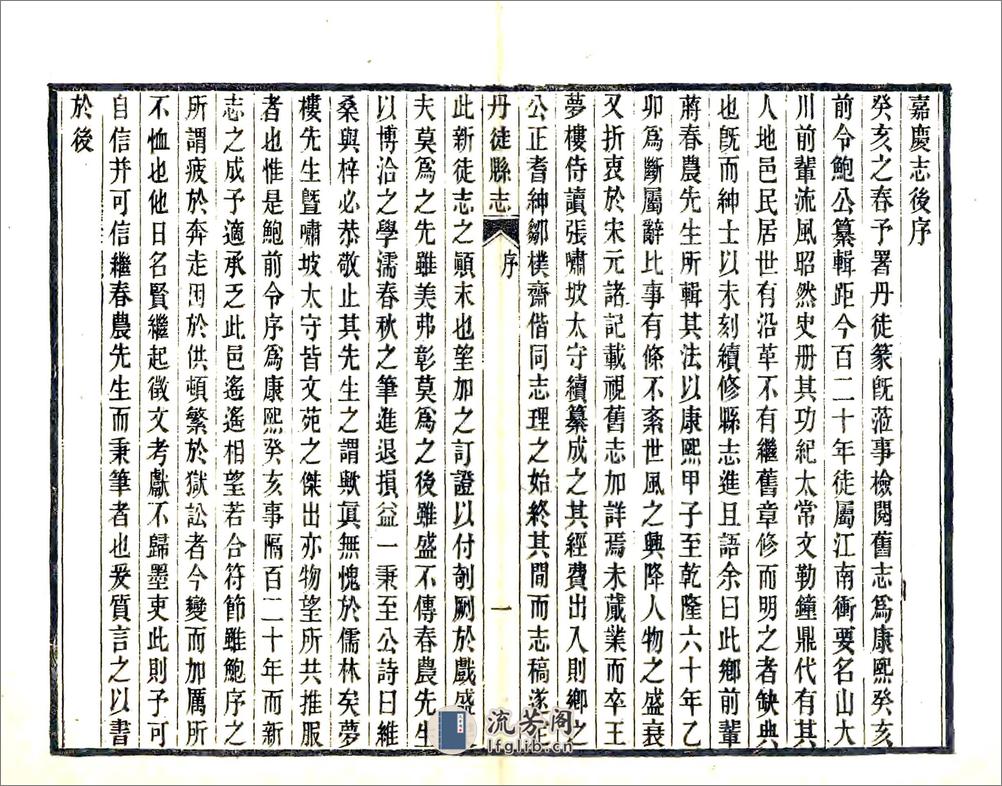 嘉慶志後序
癸亥之春予署丹徒篆旣蒞事檢閱舊志爲康熙癸亥
前令鮑公纂輯距今百二十年徒屬江南衝要名山大
川前輩流風昭然史册其功紀太常文勒鐘鼎代有其
人地邑民居世有沿革不有繼舊章修而明之者缺典
也旣而紳士以未刻續修縣志進且語余曰此鄉前輩
蔣春農先生所輯其法以康熙甲子至乾隆六十年乙
卯爲斷屬辭比事有條不紊世風之興降人物之盛衰
又折衷於宋元諸記載視舊志加詳焉未蕆業而卒王
夢樓侍讀張嘯坡太守續纂成之其經費出入則鄉之
公正耆紳鄒樸齋偕同志理之始終其間而志稿遂
丹徒縣志
序
一
此新徒志之顚末也望加之訂證以付剞劂於戲盛
夫莫爲之先雖美弗彰莫爲之後雖盛不傳春農先生
以博洽之學濡春秋之筆進退損益一秉至公詩曰維
桑與梓必恭敬止其先生之謂歟眞無愧於儒林矣夢
樓先生曁嘯坡太守皆文苑之傑出亦物望所共推服
者也惟是鮑前令序爲康熙癸亥事隔百二十年而新
志之成予適承乏此邑遙遙相望若合符節雖鮑序之
所謂疲於奔走困於供頓繁於獄訟者今變而加厲所
不恤也他日名賢繼起徵文考獻不歸墨吏此則予可
自信并可信繼春農先生而秉筆者也爰質言之以書
於後
流芳阁
lfglib.cn